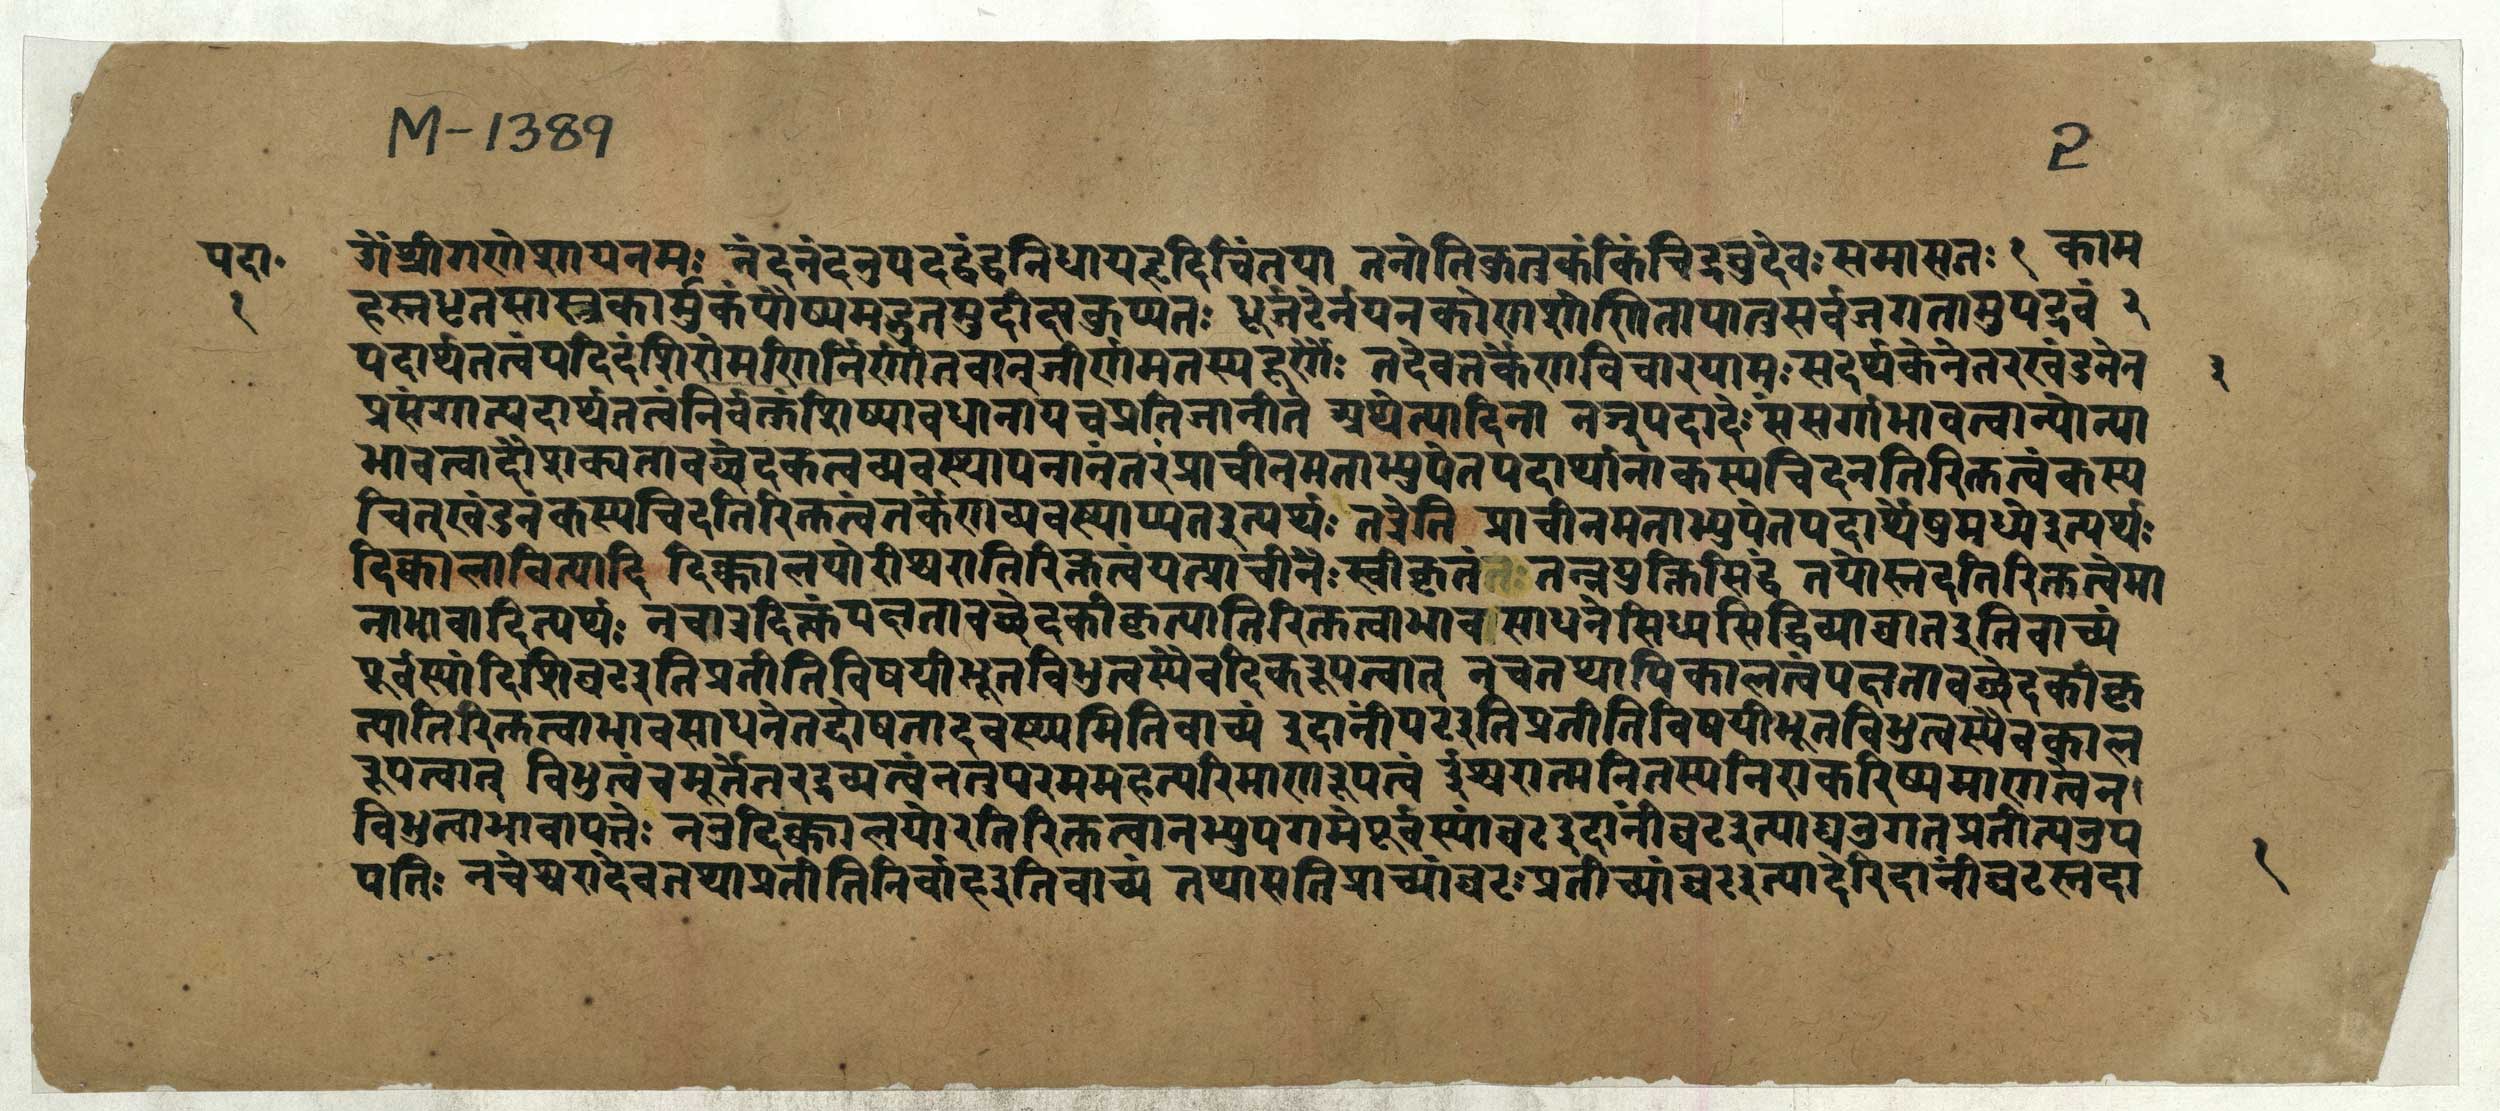 M-1389
2
पदा॰
१
ॐश्रीगणेशायनमः नंदनंदनुपदद्वंद्वनिधायहृदिचिंतया तनोतिकुतुकंकिंचिद्रघुदेवः समासतः १ काम
हस्तधृतसास्त्रकार्मुकंपौष्यमद्भुतमुदीक्षकुप्यतः धूर्जटेर्नयनकोणशोणितापातुसर्वजगतामुपद्रवं २
पदार्थतत्वंयदिदंशिरोमणिर्निर्णीतवान्जीर्णमतस्यदूषणैः तदेवतर्केणविचारयामःसदर्थकेनेतरखंडनेन
३
प्रसंगात्पदार्थतत्वंनिर्वक्तुंशिष्यावधानायचप्रतिजानीते अथेत्यादिना नञ्पदादेः संसर्गाभावत्वान्योन्या
भावत्वादौशक्यतावच्छेदकत्वव्यवस्थापनानंतरंप्राचीनमताभ्युपेतपदार्थानांकस्यचिदनतिरिक्तत्वंकस्य
चित्खंडनंकस्यचिदतिरिक्तत्वंतर्केणव्यवस्थाप्यतइत्यर्थः तत्रेति प्राचीनमताभ्युपेतपदार्थेषुमध्येइत्यर्थः
दिक्कालावित्यादि दिक्कालयोरीश्वरातिरिक्तत्वंयत्प्राचीनैः स्वीकृतंतः तन्नयुक्तिसिद्धं तयोस्तदतिरिक्तत्वेमा
नाभावादित्यर्थः नचात्रदिक्त्वंपक्षतावच्छेदकीकृत्यातिरिक्तत्वाभावसाधनेसिध्यसिद्धिव्याघातइतिवाच्यं
पूर्वस्यांदिशिघटइतिप्रतीतिविषयीभूतविभुत्वस्यैवदिक्रूपत्वात् नचतथापिकालत्वंपक्षतावच्छेदकीकृ
त्यातिरिक्तत्वाभावसाधनेतद्दोषतादवस्थ्यमितिवाच्यं इदानींघटइतिप्रतीतिविषयीभूतविभुत्वस्यैवकाल
रूपत्वात् विभुत्वंचमूर्तेतरद्रव्यत्वंनतुपरममहत्परिमाणरूपत्वं ईश्वरात्मनितस्यनिराकरिष्यमाणत्वेन
विभुत्वाभावापत्तेः ननुदिक्कालयोरतिरिक्तत्वानभ्युपगमेपूर्वस्यांघटइदानींघटइत्याद्यनुगतप्रतीत्यनुप
पतिः नचेश्वरादेवतथाप्रतीतिनिर्वाहइतिवाच्यं तथासतिप्राच्यांघटःप्रतीच्यांघटइत्यादेरिदानींघटस्तदा
१